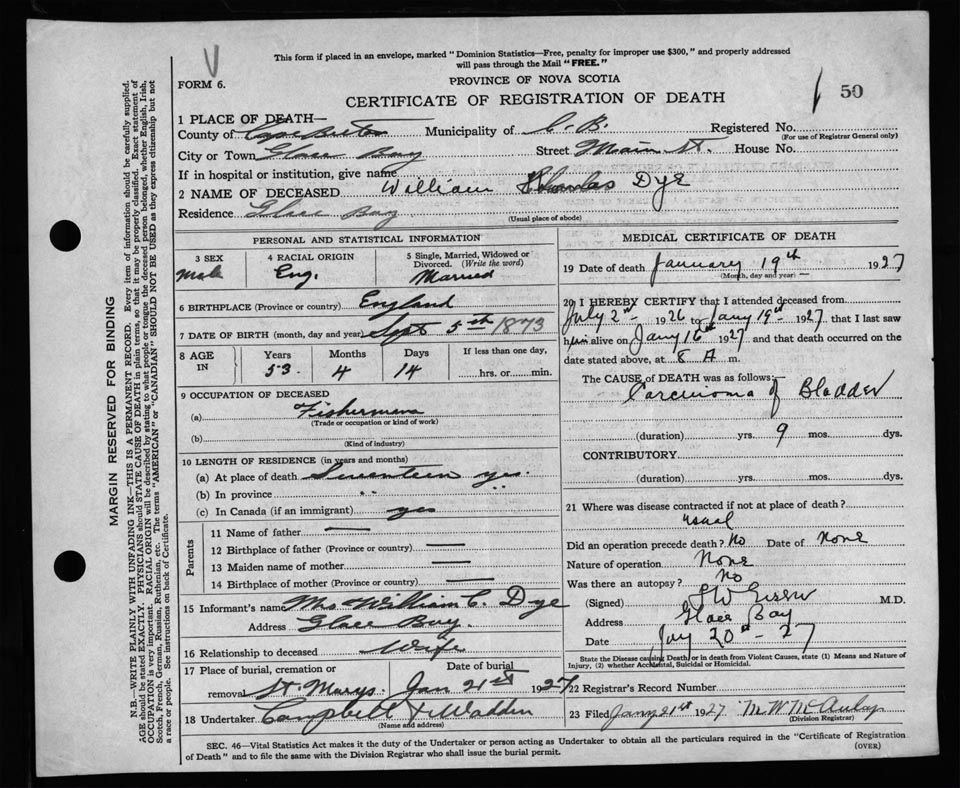 This form if placed in an envelope, marked "Dominion Statistics—Free, penalty for improper use $300," and properly addressed
will pass through the Mail "FREE."
FORM 6.
PROVINCE OF NOVA SCOTIA
CERTIFICATE OF REGISTRATION OF DEATH
50
1 PLACE OF DEATH—
County of Cape Breton Municipality of C. B. Registered No.
(For use of Registrar General only)
City or Town Glace Bay Street Main St. House No.
If in hospital or institution, give name
2 NAME OF DECEASED William Charles Dye
Residence Glace Bay
(Usual place of abode)
PERSONAL AND STATISTICAL INFORMATION
3 SEX 4 RACIAL ORIGIN 5 Single, Married, Widowed or Divorced. (Write the word)
Male Eng. Married
6 BIRTHPLACE (Province or country) England
7 DATE OF BIRTH (month, day and year) Sept 5th 1873
8 AGE IN Years Months Days If less than one day,
53 4 14 hrs. or min.
9 OCCUPATION OF DECEASED
(a) Fisherman
(Trade or occupation or kind of work)
(b)
(Kind of industry)
10 LENGTH OF RESIDENCE (in years and months)
(a) At place of death Seventeen yrs.
(b) In province " "
(c) In Canada (if an immigrant) yes
Parents
11 Name of father —
12 Birthplace of father (Province or country) —
13 Maiden name of mother —
14 Birthplace of mother (Province or country) —
15 Informant's name Mrs William C. Dye
Address Glace Bay
16 Relationship to deceased Wife
17 Place of burial, cremation or Date of burial
removal St. Marys. Jan 21st 1927
18 Undertaker Campbell & Wadden
(Name and address)
MEDICAL CERTIFICATE OF DEATH
19 Date of death January 19th 1927
(Month, day and year)
20 I HEREBY CERTIFY that I attended deceased from
July 2nd 1926 to Jany 19th 1927, that I last saw
him alive on Jany 16th 1927 and that death occurred on the
date stated above, at 8 A m.
The CAUSE of DEATH was as follows:—
Carcinoma of Bladder
(duration) yrs. 9 mos. dys.
CONTRIBUTORY
(duration) yrs. mos. dys.
21 Where was disease contracted if not at place of death?
usual
Did an operation precede death? No Date of None
Nature of operation None
Was there an autopsy? No
(Signed) M.D.
Address Glace Bay
Date Jay 20th - 27
State the Disease causing Death, or in death from Violent Causes, state (1) Means and Nature of
Injury, (2) whether Accidental, Suicidal or Homicidal.
22 Registrar's Record Number
23 Filed Jany 21st 1927 M. W. McAulay
(Division Registrar)
SEC. 46—Vital Statistics Act makes it the duty of the Undertaker or person acting as Undertaker to obtain all the particulars required in the "Certificate of Registration
of Death" and to file the same with the Division Registrar who shall issue the burial permit.
(OVER)
MARGIN RESERVED FOR BINDING
N.B.—WRITE PLAINLY WITH UNFADING INK—THIS IS A PERMANENT RECORD. Every item of information should be carefully supplied.
AGE should be stated EXACTLY. PHYSICIANS should STATE CAUSE OF DEATH in plain terms, so that it may be properly classified. Exact statement of
OCCUPATION is very important. RACIAL ORIGIN will be described by stating to what people or tongue the deceased person belonged, whether English, Irish,
Scotch, French, German, Russian, Ruthenian, etc. The terms "AMERICAN" or "CANADIAN" SHOULD NOT BE USED as they express citizenship but not
a race or people. See instructions on back of Certificate.